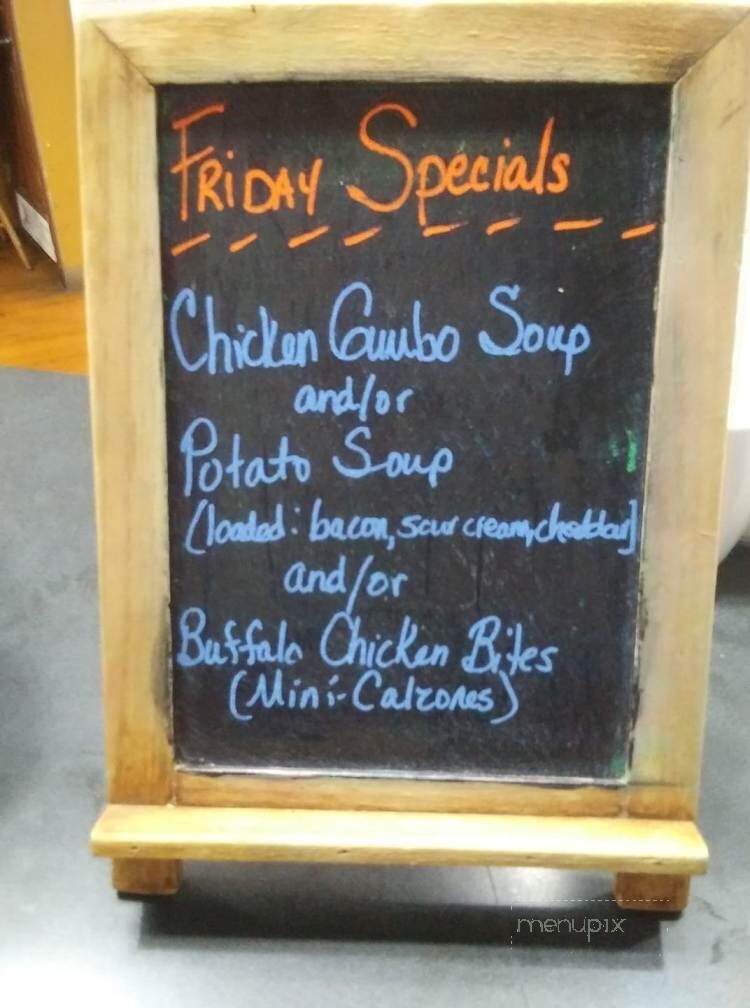 FRiDAY Specials
Chicken Gumbo Soup
and/or
Potato Soup
(loaded: bacon, sour cream, cheddar]
and/or
Buffalo Chicken Bites
(Mini-Calzones)
menupix